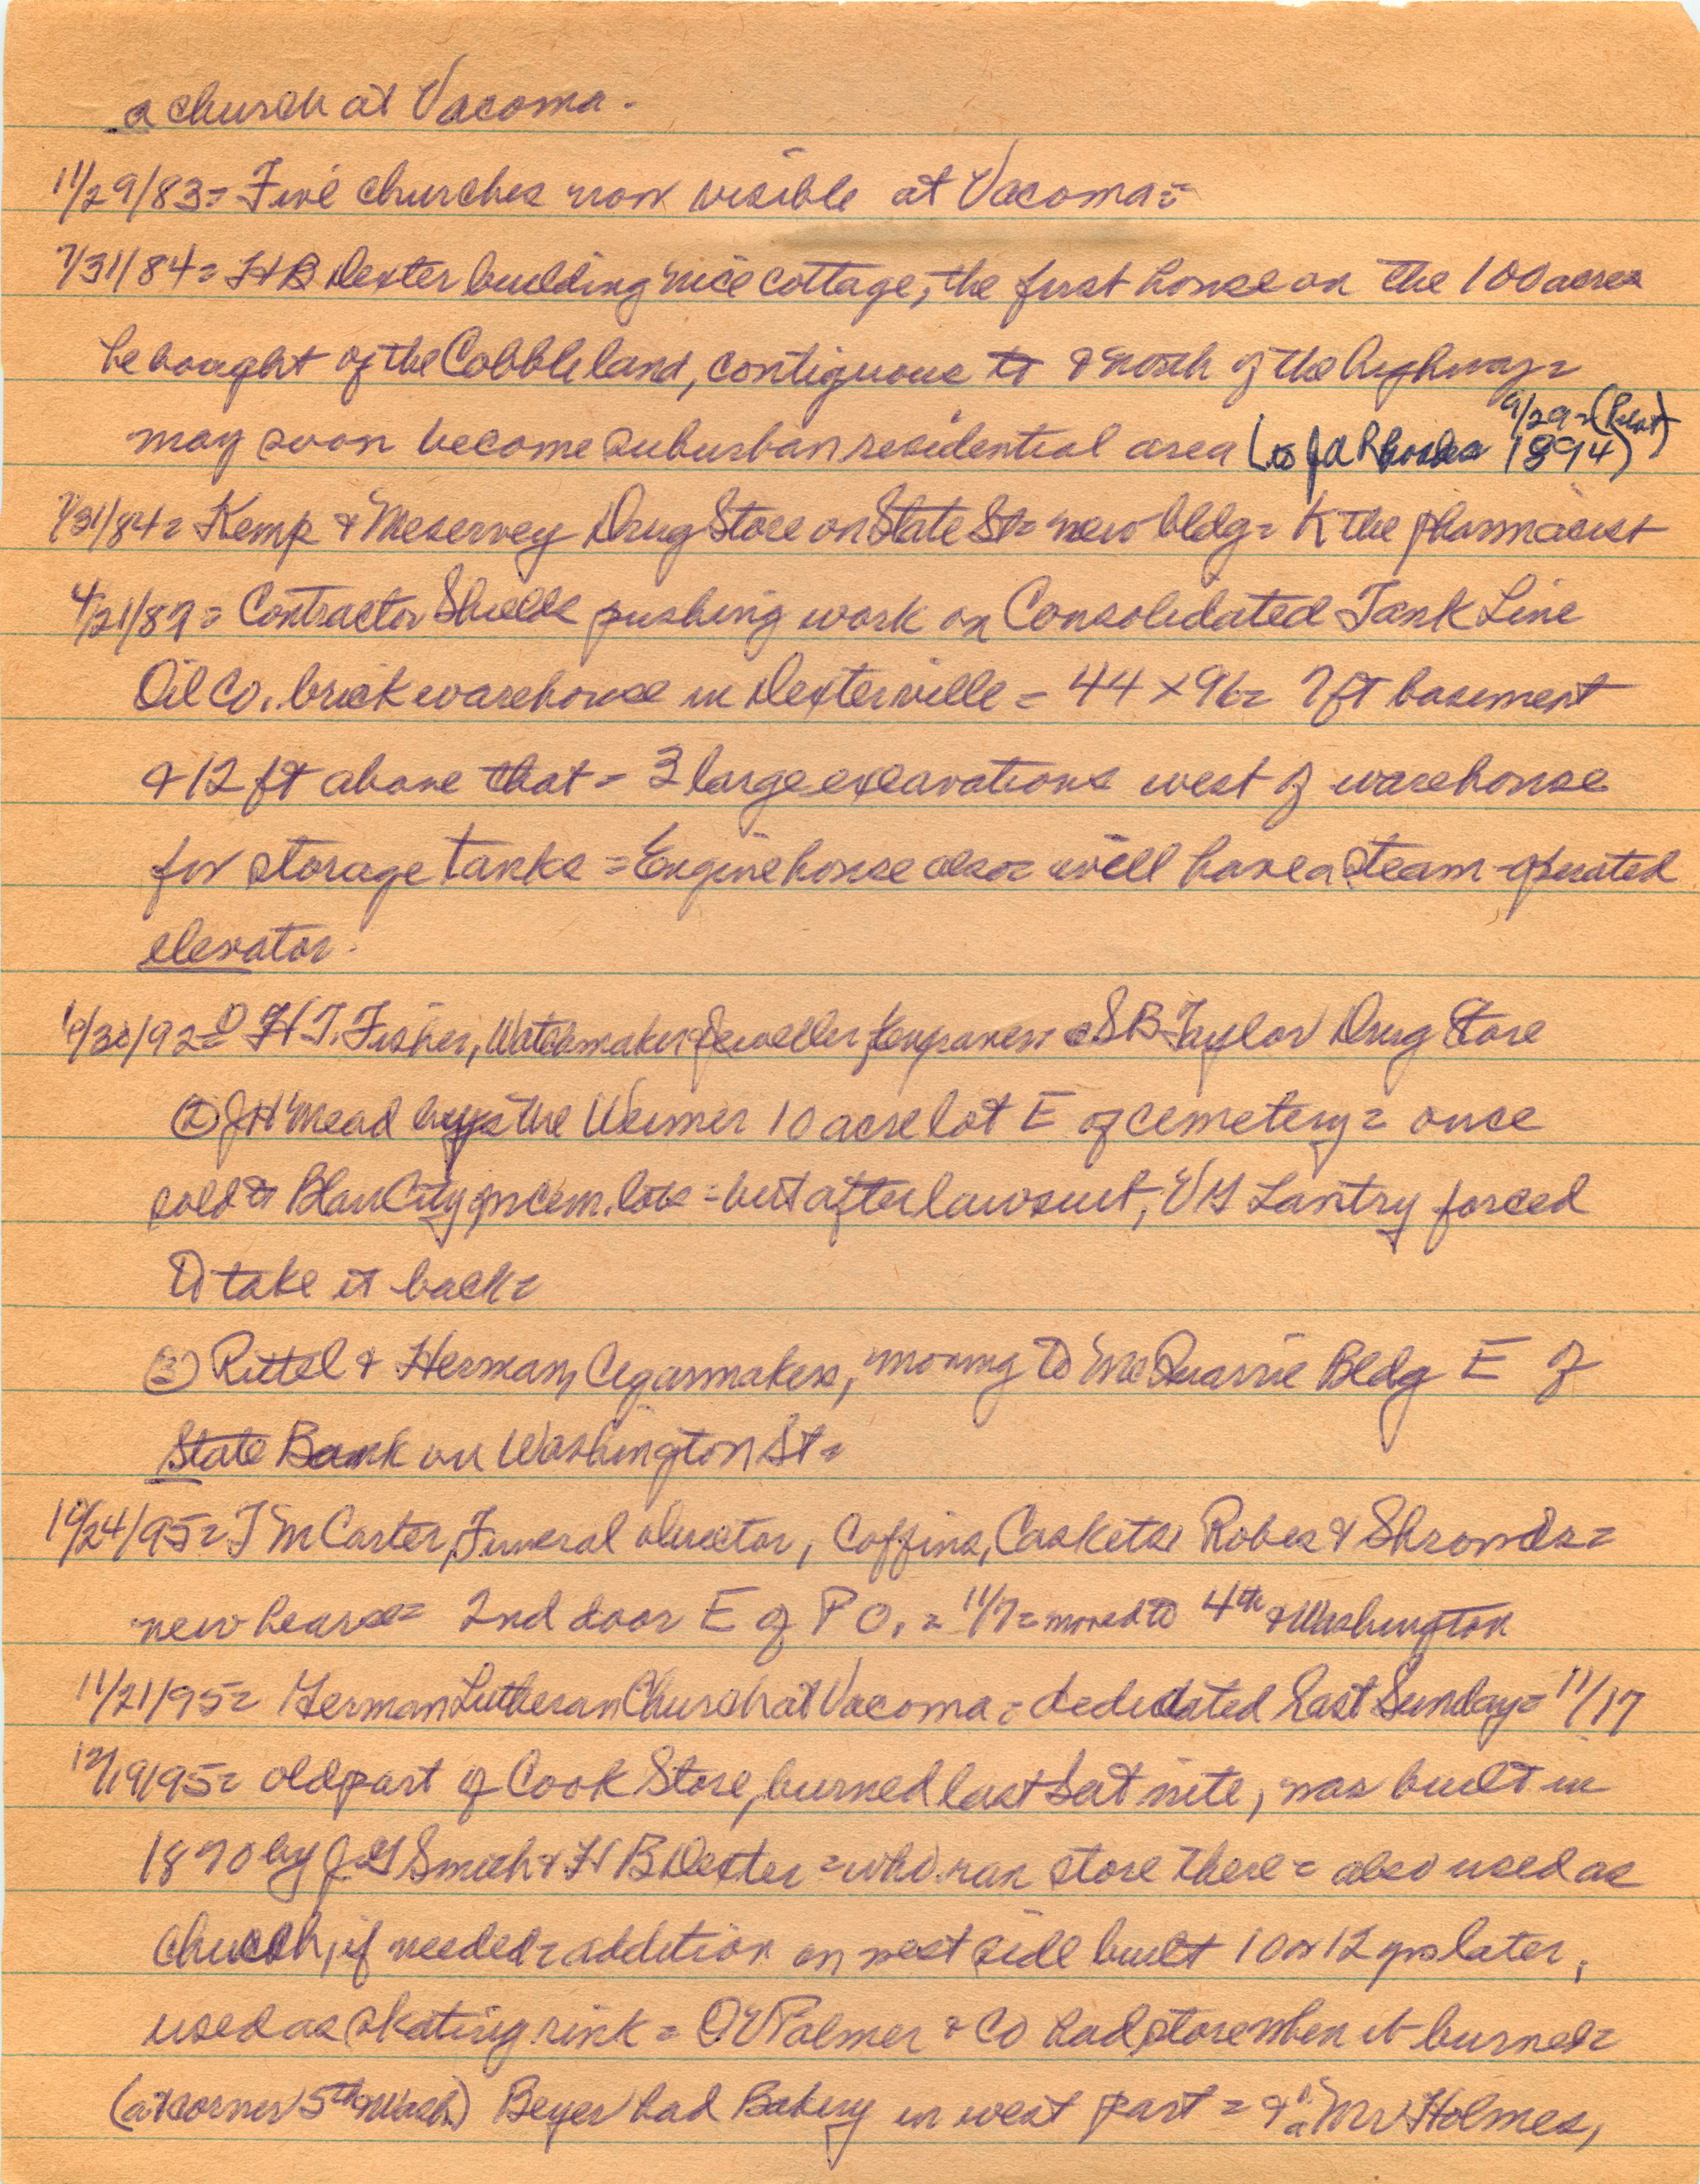 a church at Vacoma.
11/29/83= Five churches now visible at Vacoma=
7/31/84= H B Dexter building nice cottage, the first house on the 100 acres
he bought of the Cobble land, contiguous to & north of the highway=
may soon become suburban residential area (is J A Rhoades 9/29=(Pilot) 1894)
7/31/84= Kemp & Meservey Drug Store on State St= new bldg= K the pharmacist
4/21/87= Contractor Shields pushing work on Consolidated Tank Line
Oil Co. brick warehouse in Dexterville = 44 x 96= 7 ft basement
& 12 ft above that = 3 large excavations west of warehouse
for storage tanks = Engine house also= will have a steam-operated
elevator.
6/30/92= ① H T. Fisher, Watchmaker & Jeweller, Engraver= c S B Taylor Drug Store
② J H Mead buys the Weimer 10 acre lot E of cemetery= once
sold to Blair City for cem. lots = but after lawsuit, V G Lantry forced
to take it back=
③ Rittel & Herman, Cigarmakers, moving to McQuarrie Bldg E of
State Bank on Washington St=
10/24/95= T M Carter, Funeral director, Coffins, Caskets, Robes & Shrouds=
new hearse= 2nd door E of P O. = 11/7= moved to 4th & Washington
11/21/95= German Lutheran Church at Vacoma = dedicated last Sunday= 11/17
12/19/95= old part of Cook Store, burned last Sat nite, was built in
1870 by J G Smith & H B Dexter = who ran store there = also used as
church, if needed= addition on west side built 10 or 12 yrs later,
used as skating rink = O V Palmer & Co had store when it burned=
(at corner 5th & Wash.) Beyer had Bakery in west part = & a Mr Holmes,